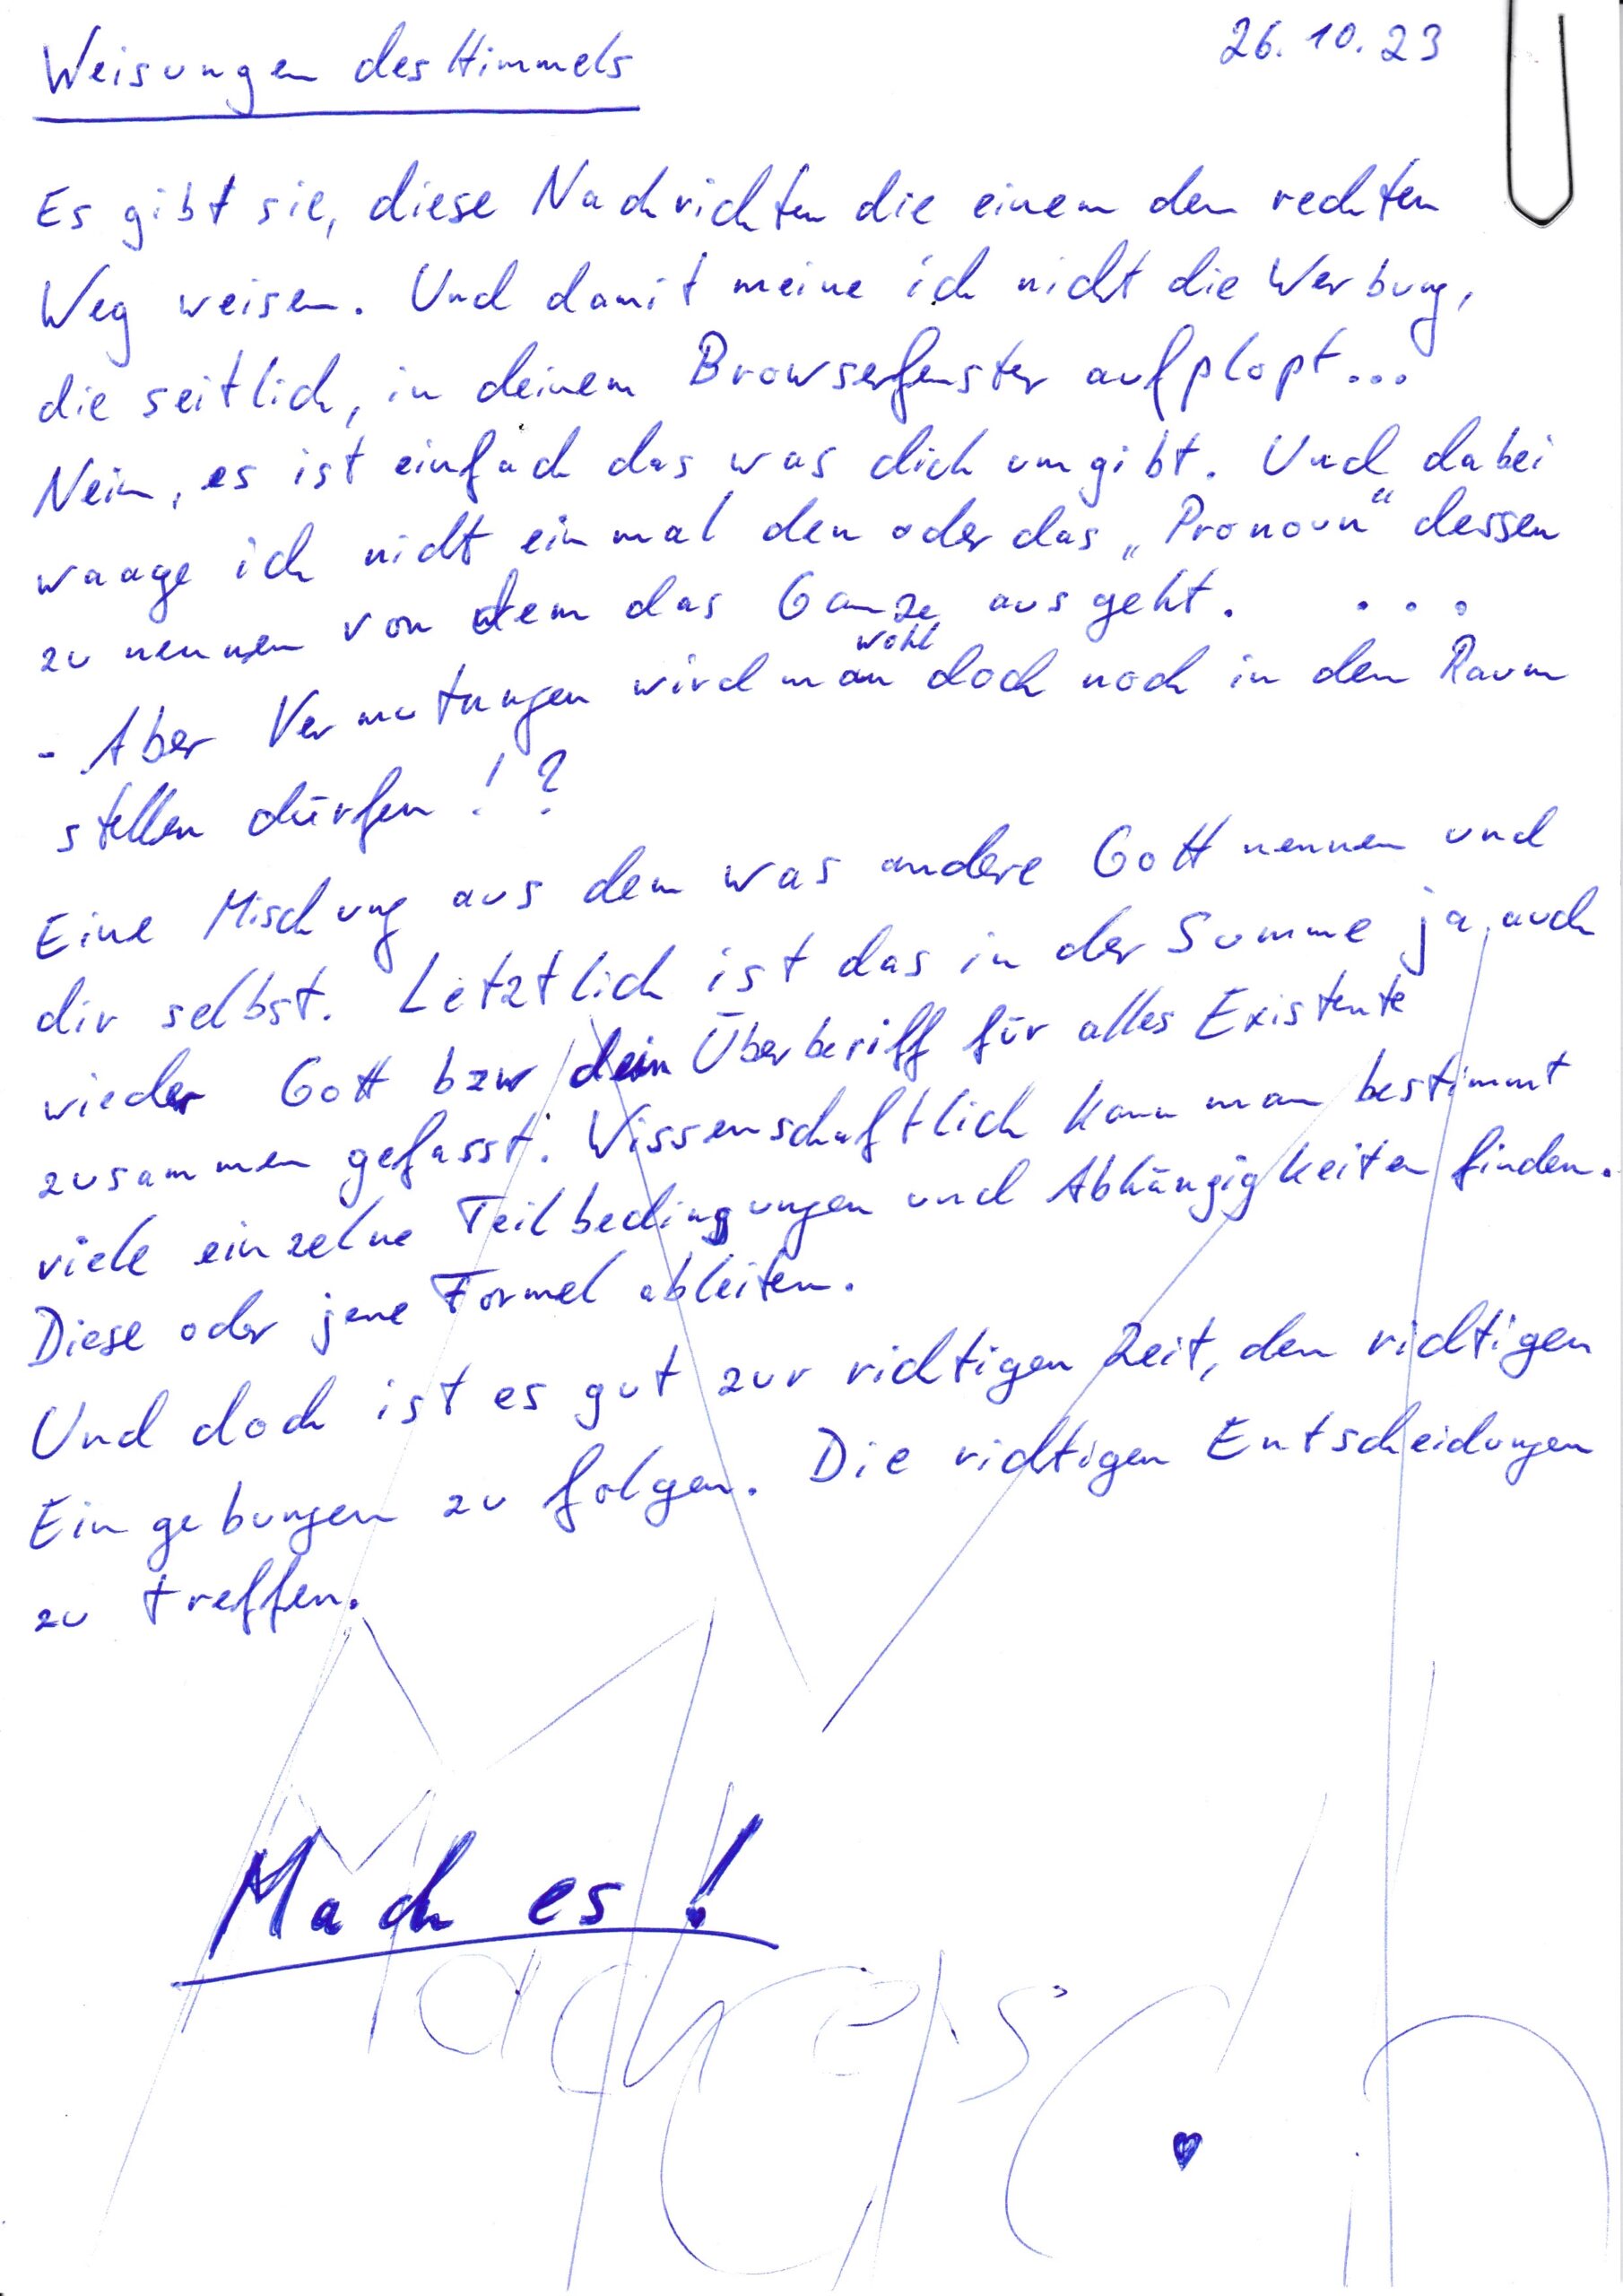 Weisungen des Himmels 26.10.23
Es gibt sie, diese Nachrichten die einem den rechten
Weg weisen. Und damit meine ich nicht die Werbung,
die seitlich, in deinem Browserfenster aufplopt...
Nein, es ist einfach das was dich umgibt. Und dabei
waage ich nicht einmal den oder das „Pronoun“ dessen
zu nennen von dem das Ganze ausgeht. ...
- Aber Vermutungen wird man wohl doch noch in den Raum
stellen dürfen!?
Eine Mischung aus dem was andere Gott nennen und
dir selbst. Letztlich ist das in der Summe ja auch
wieder Gott bzw dein Überberiff für alles Existente
zusammen gefasst. Wissenschaftlich kann man bestimmt
viele einzelne Teilbedingungen und Abhängigkeiten finden.
Diese oder jene Formel ableiten.
Und doch ist es gut zur richtigen Zeit, den richtigen
Eingebungen zu folgen. Die richtigen Entscheidungen
zu treffen.
Mach es!
Mach es